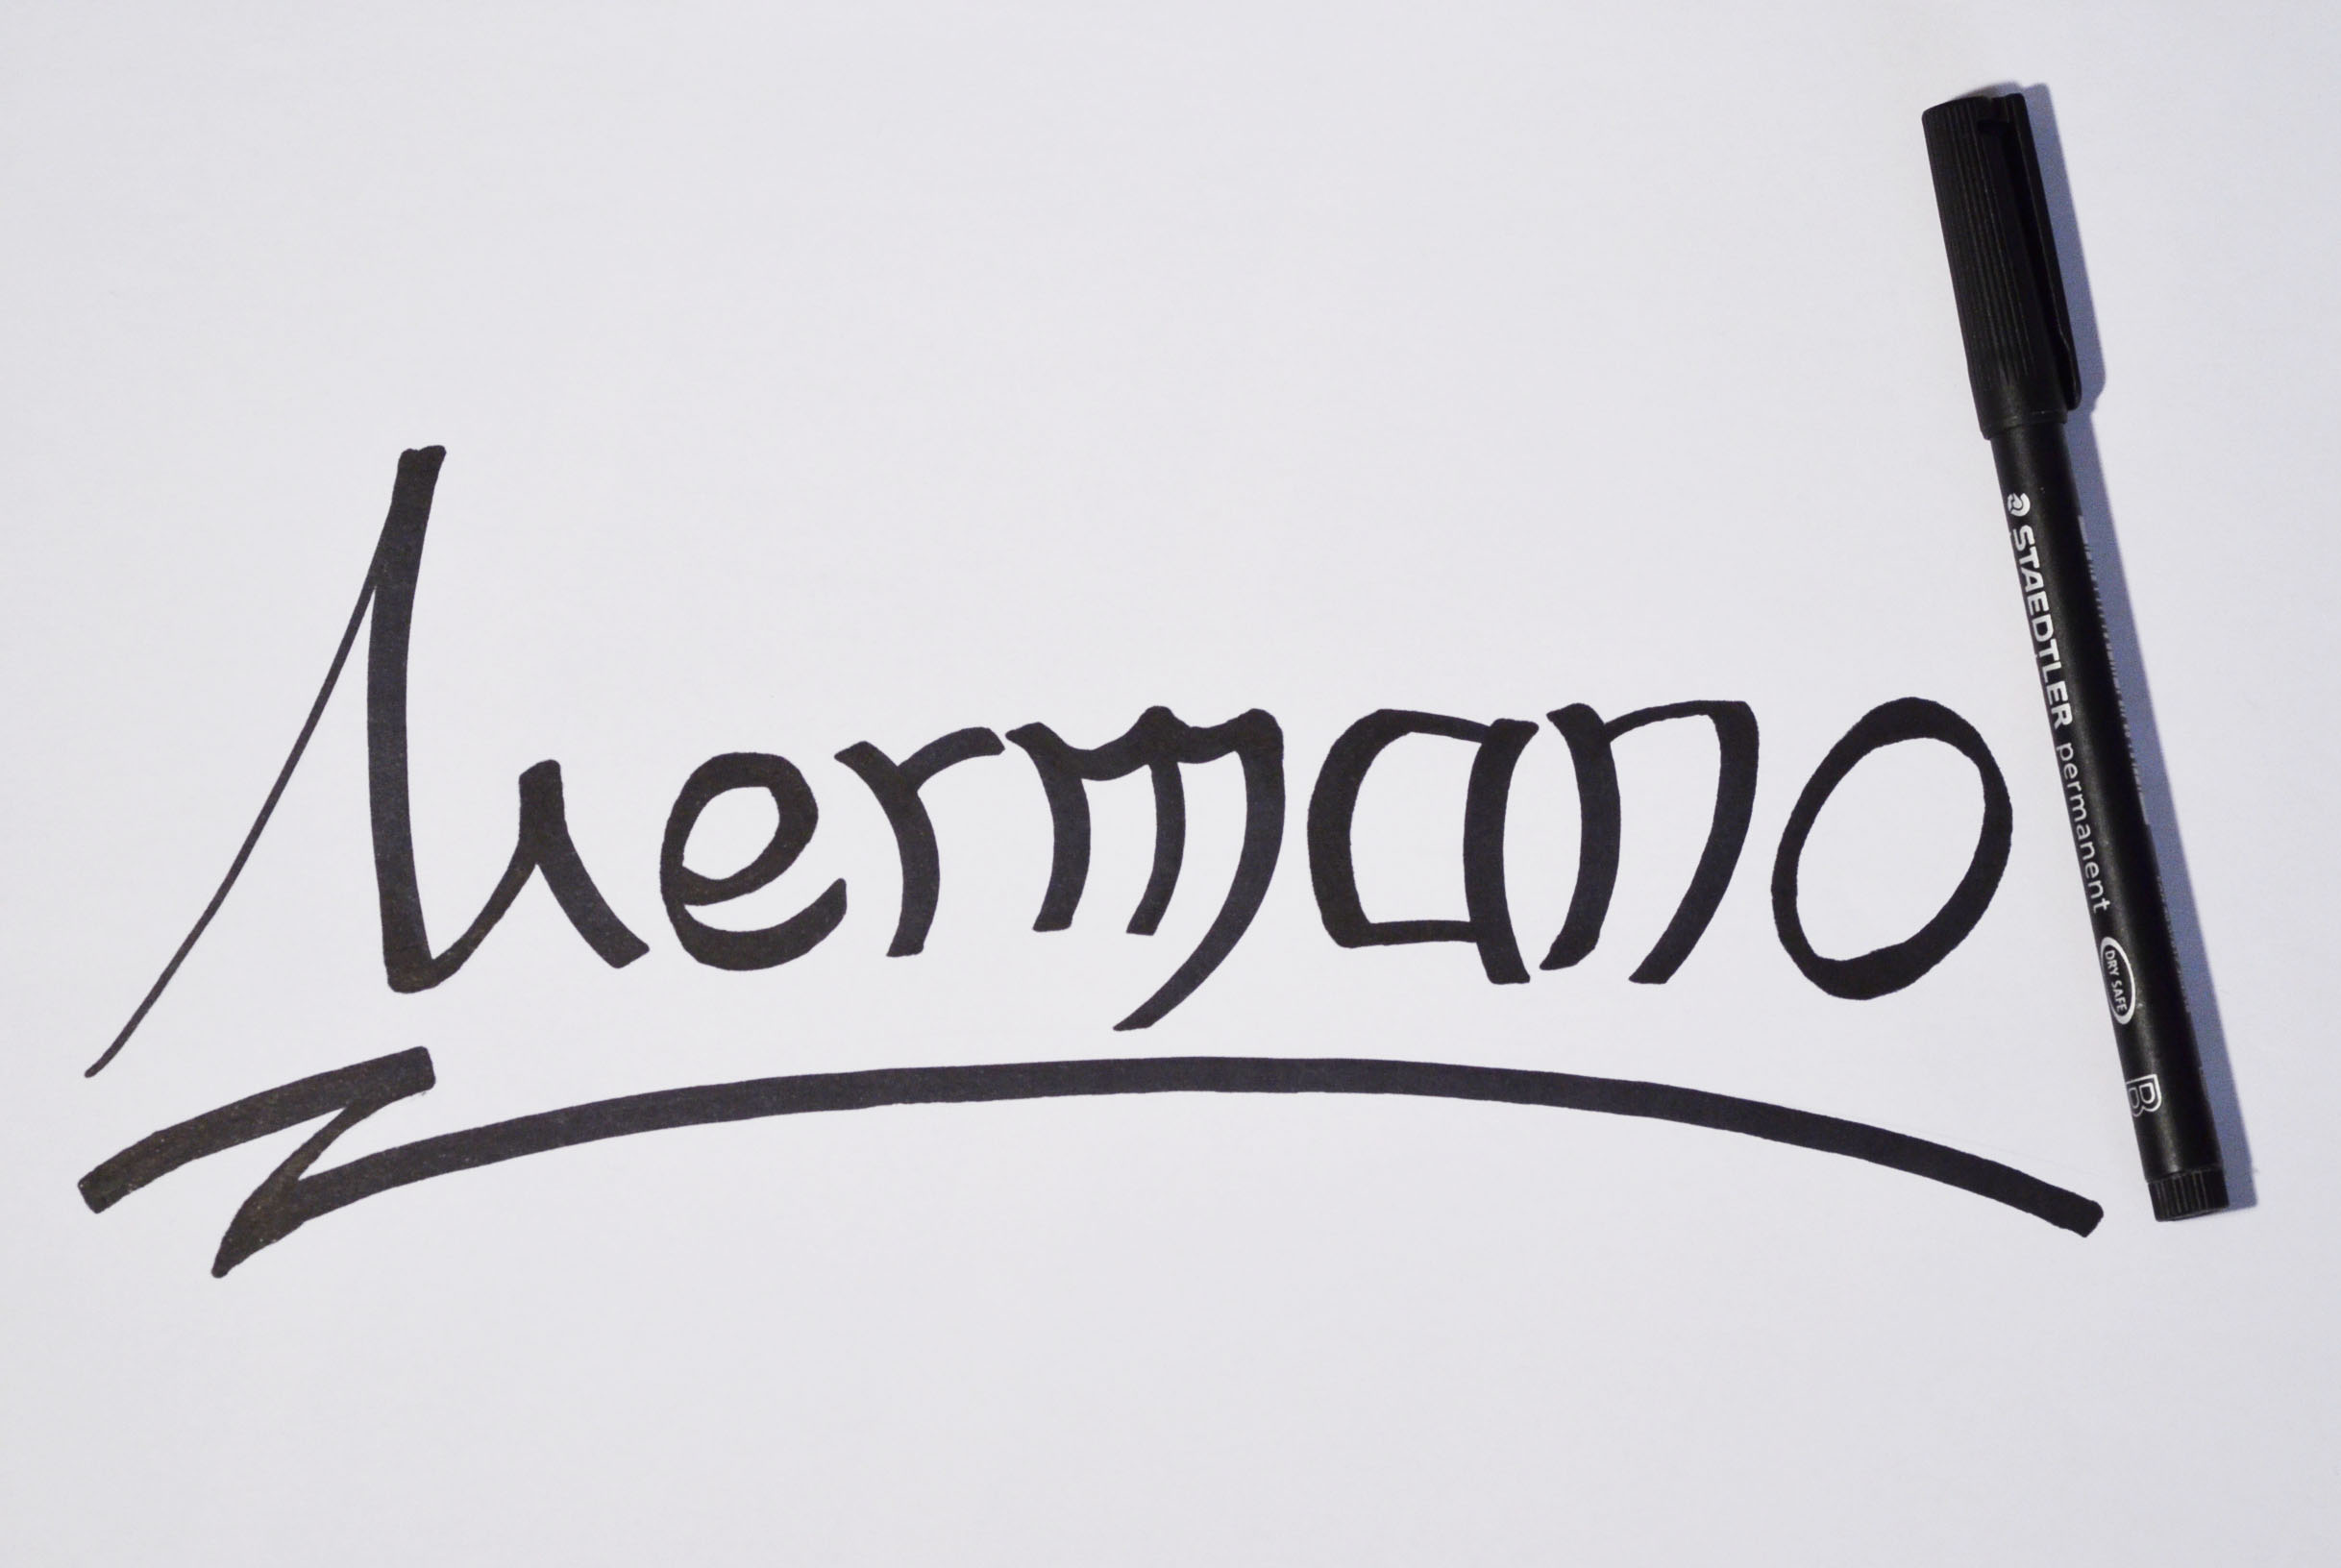 Hermano
STAEDTLER permanent DRY SAFE B